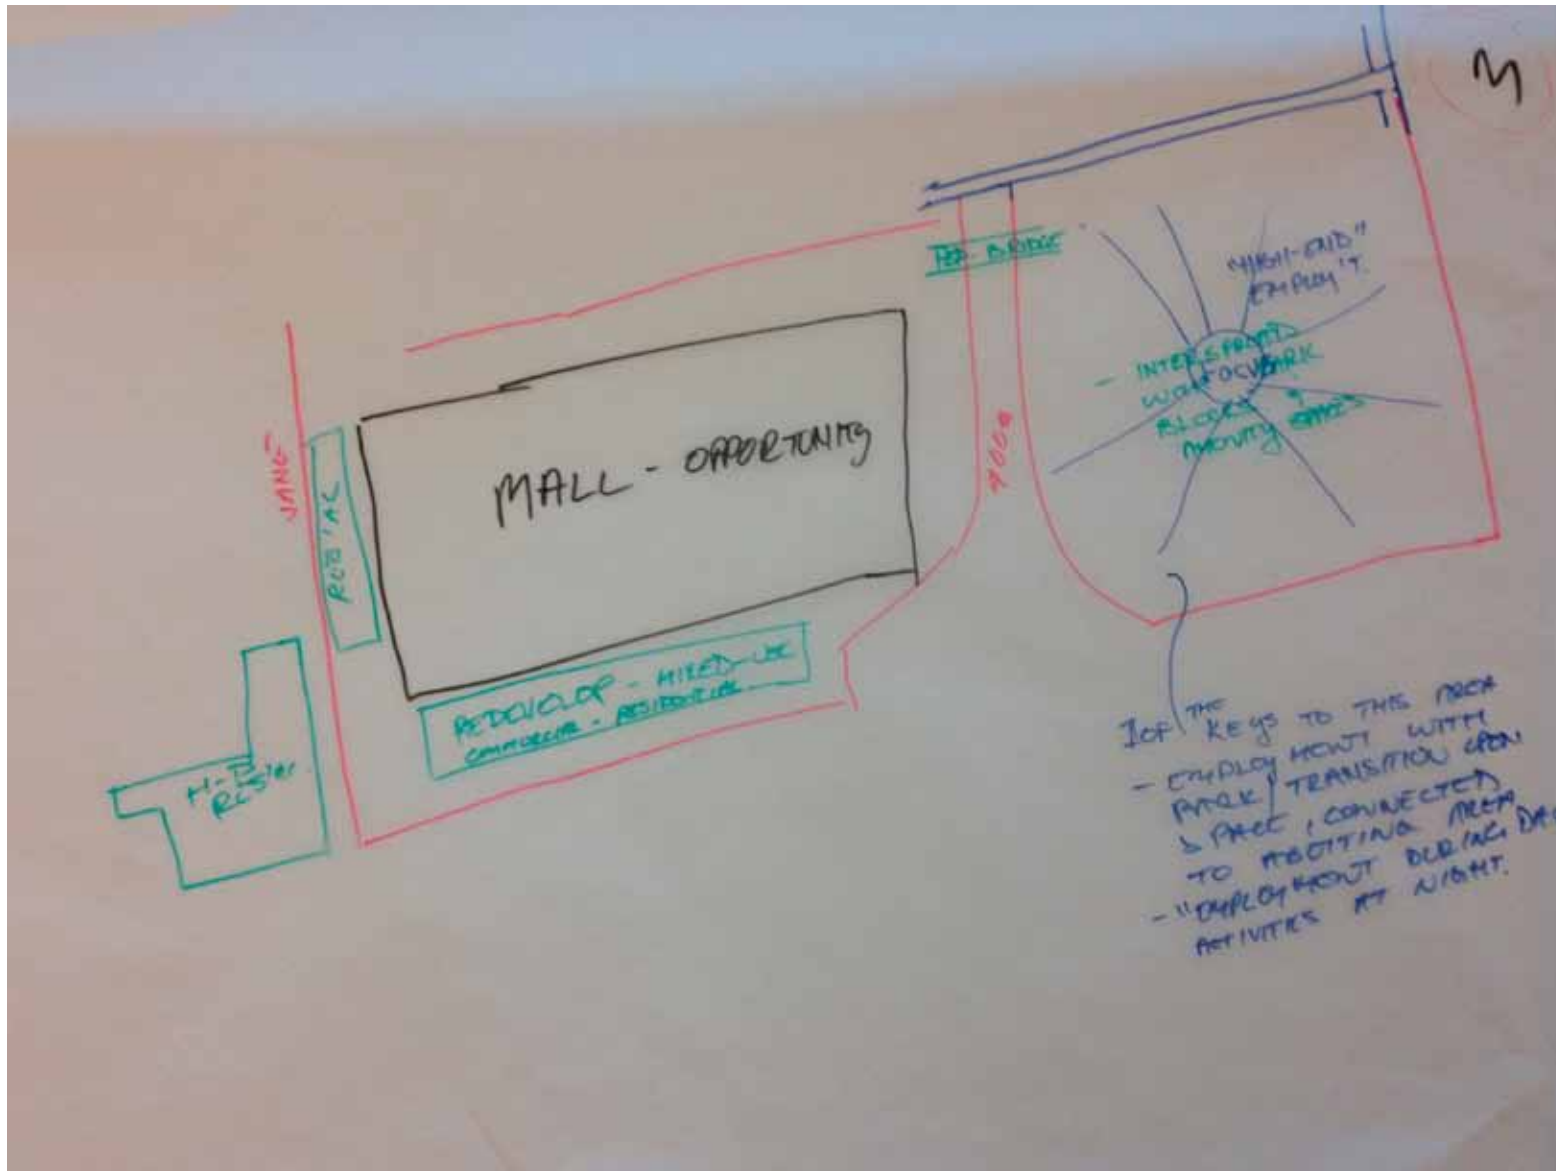 3
PED. BRIDGE
"HIGH-END"
EMPLOY'T.
- INTERSPERSED
BLOCKS &
AMENITY SPACES
MALL - OPPORTUNITY
JANE
400
RES'AL
REDEVELOP - MIXED-USE
COMMERCIAL - RESIDENTIAL
H-D
1 OF THE KEYS TO THIS AREA
- EMPLOYMENT WITH
PARK / TRANSITION OPEN
SPACE, CONNECTED
TO ABUTTING AREA
- "EMPLOYMENT DURING DAY
ACTIVITIES AT NIGHT.